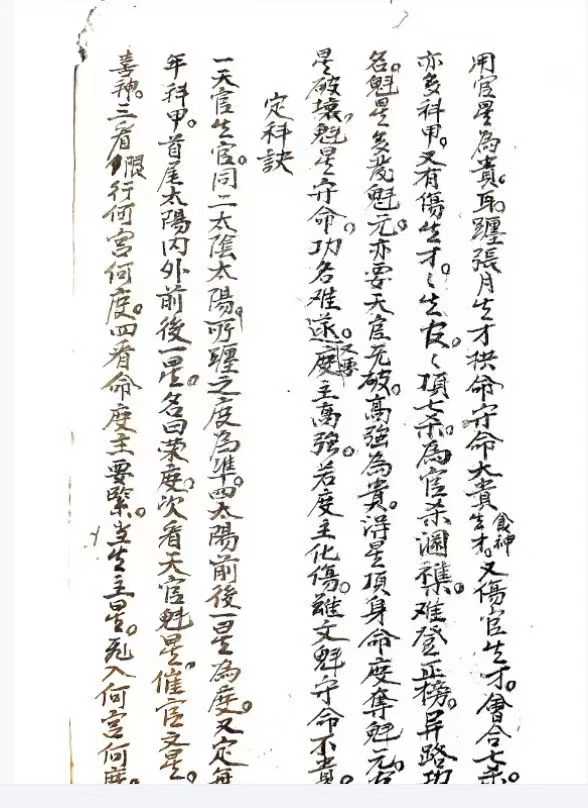 用官星為貴。耳躔張月生才拱命守命大貴食神生才。又傷官生才。會合七杀。
亦多科甲。又有傷生才才生官。官頂七杀。為官杀混襍。难登正榜。异路功
名。魁星多庞魁元。亦要天官无破。高強為貴。得星頂身命度奪魁元。
星破壞。魁星守命。功名难遂。又要度主高強。若度主化傷。雖文魁守命不貴。
定科訣
一天官生官。同二太陰太陽。所躔之度為準。四太陽前後一星為度。又定每
年科甲。首尾太陽内外前後一星。名曰荣度。次看天官魁星。催官文星。
喜神。三看限行何宮何度。四看命度主要緊。生主星。入何宮何度